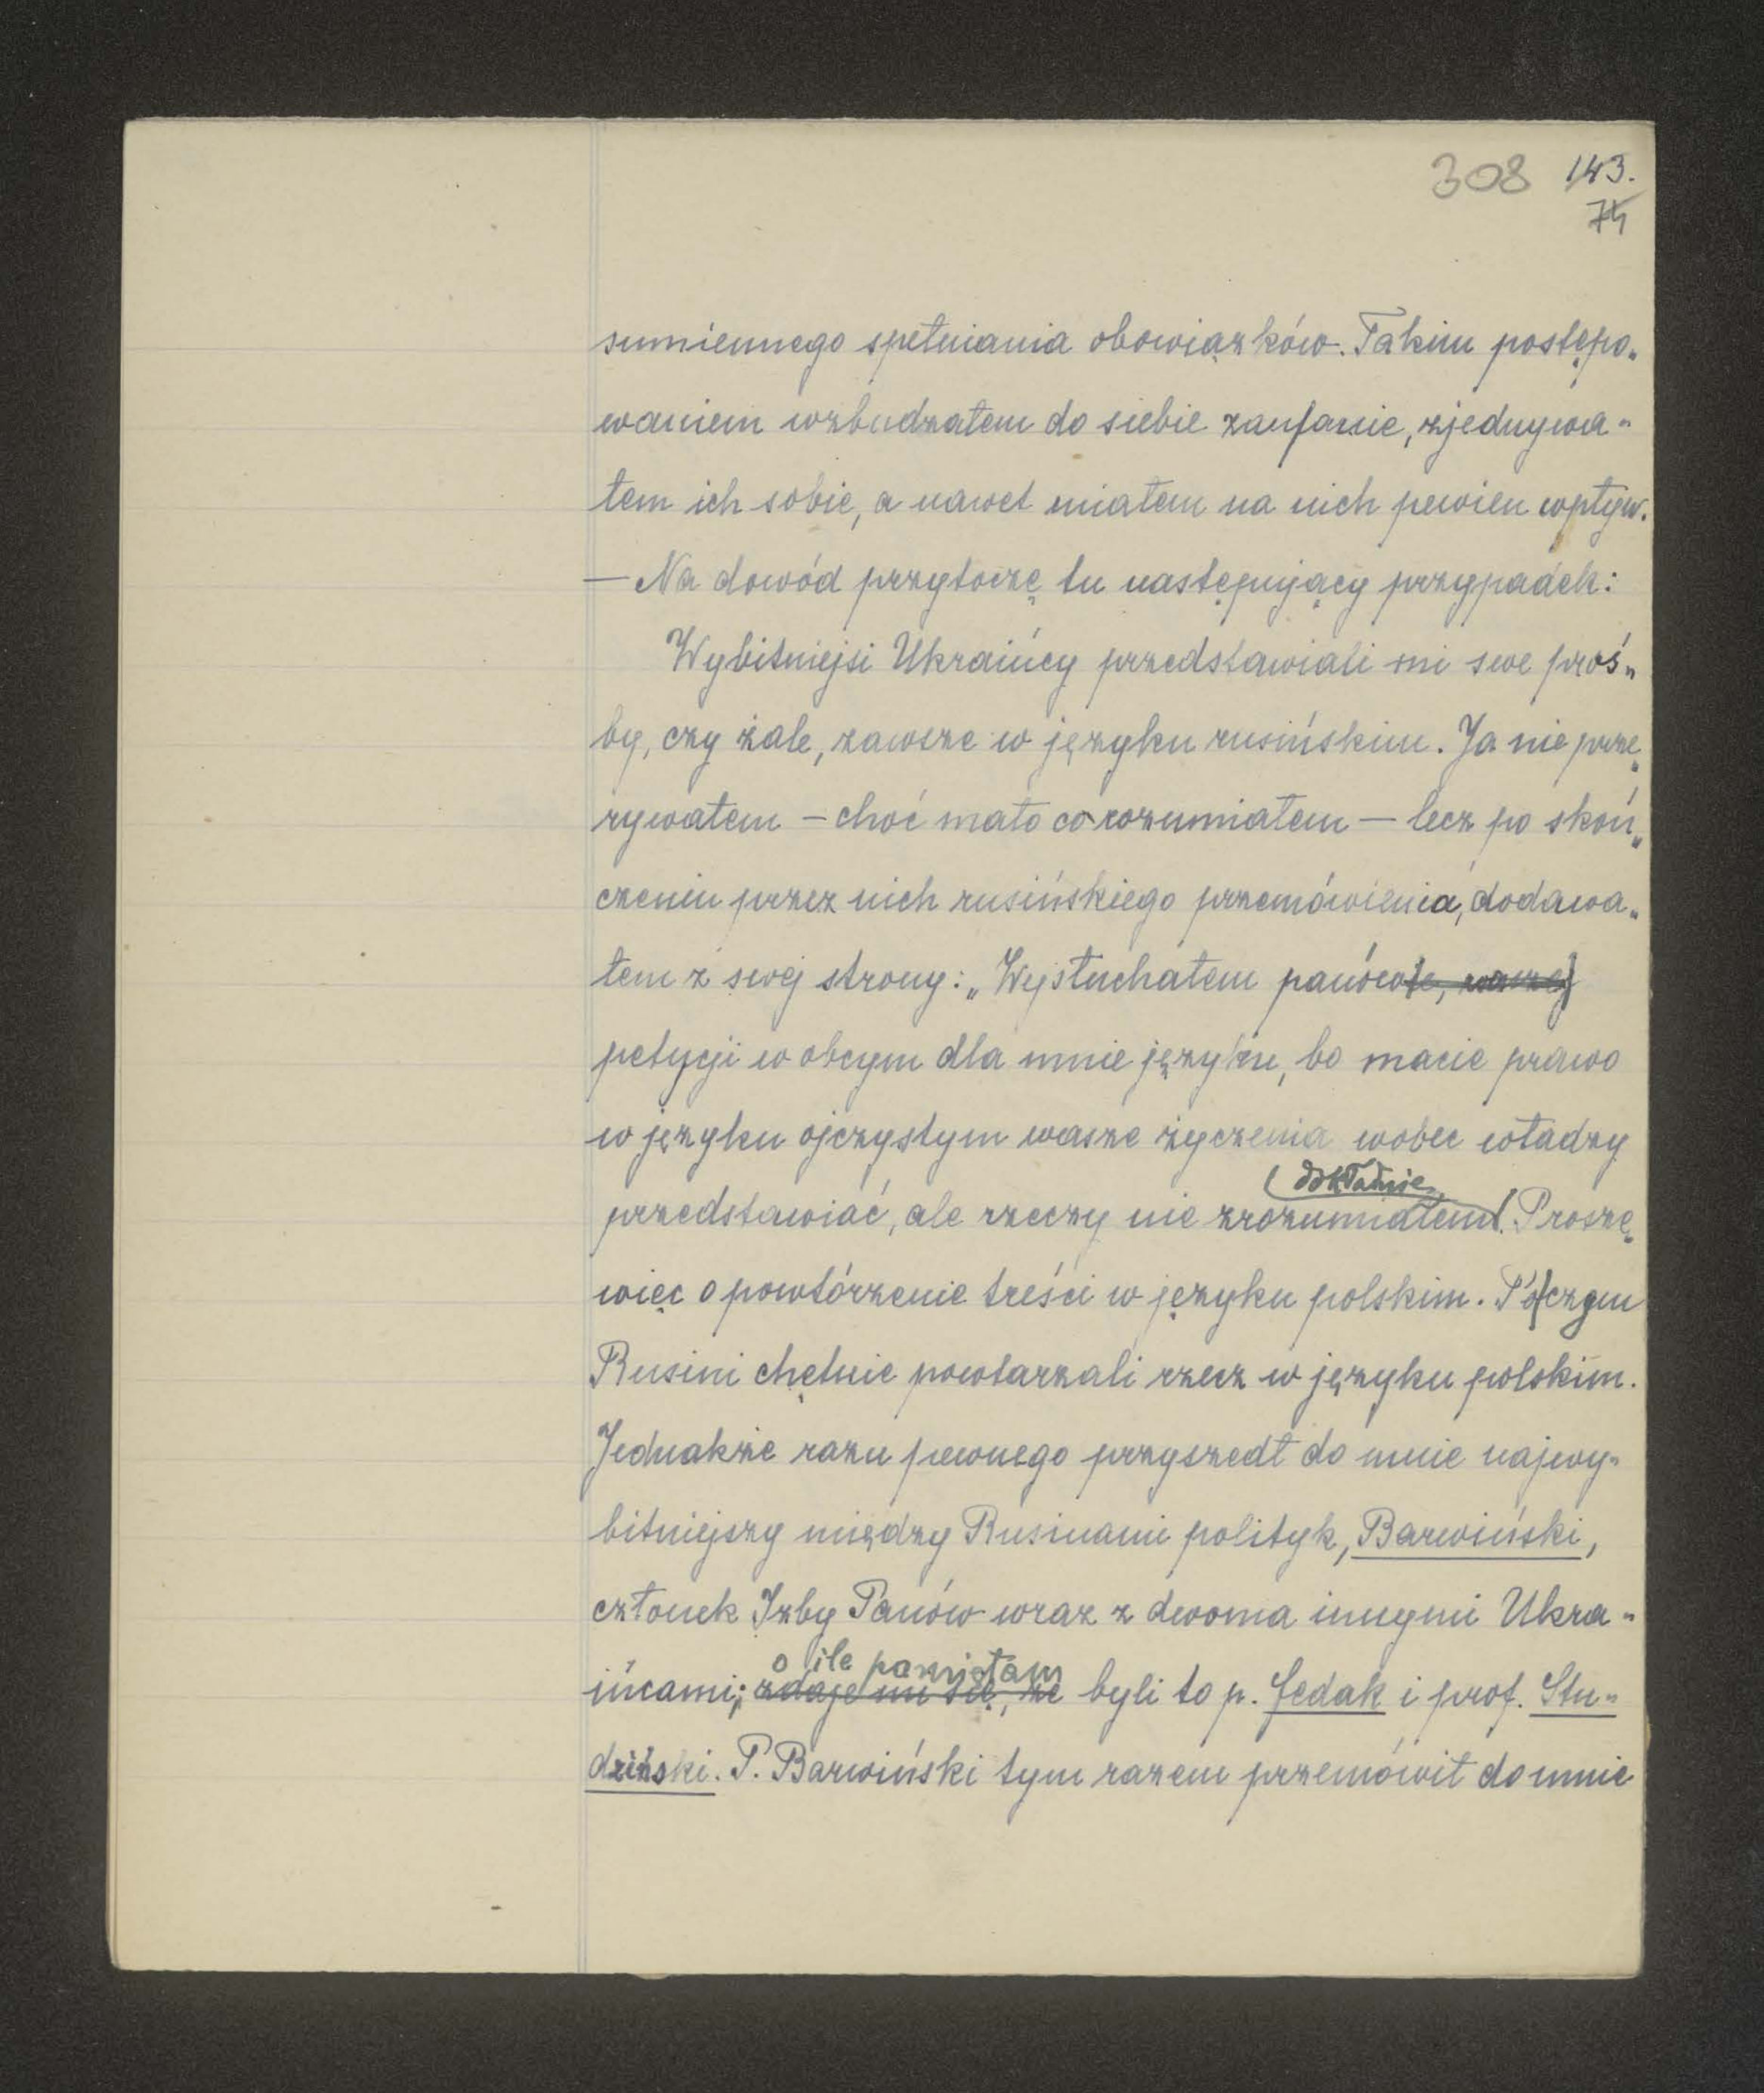 308 143.
74
sumiennego spełniania obowiązków. Takim postępo„
waniem wzbudzałem do siebie zaufanie, zjednywa„
łem ich sobie, a nawet miałem na nich pewien wpływ.
— Na dowód przytoczę tu następujący przypadek:
Wybitniejsi Ukraińcy przedstawiali mi swe proś„
by, czy żale, zawsze w języku rusińskim. Ja nie prze„
rywałem – choć mało co rozumiałem — lecz po skoń„
czeniu przez nich rusińskiego przemówienia, dodawa„
łem z swej strony: „Wysłuchałem panów
petycji w obcym dla mnie języku, bo macie prawo
w języku ojczystym wasze życzenia wobec władzy
dokładnie
przedstawiać, ale rzeczy nie zrozumiałem. Proszę
więc o powtórzenie treści w języku polskim. Poczem
Rusini chętnie powtarzali rzecz w języku polskim.
Jednakże razu pewnego przyszedł do mnie najwy„
bitniejszy między Rusinami polityk, Barwiński,
członek Izby Panów wraz z dwoma innymi Ukra„
o ile pamiętam
ińcami; zdaje mi się, że byli to p. Fedak i prof. Stu„
dziński. P. Barwiński tym razem przemówił do mnie